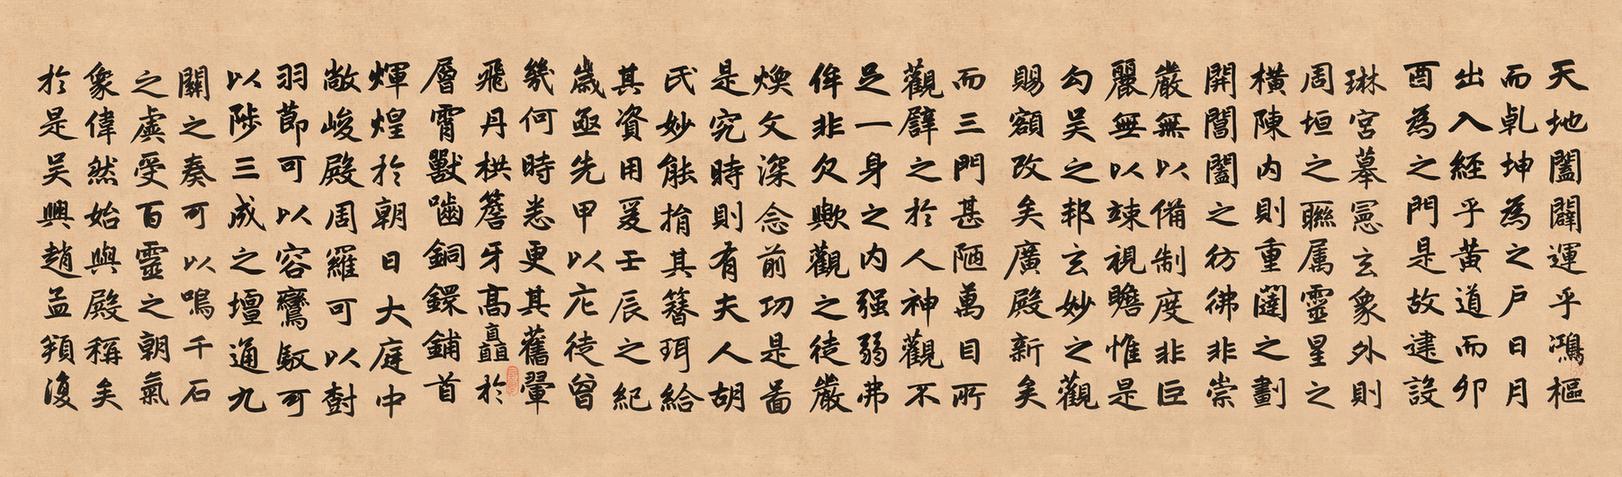 天地闔闢運乎鴻樞
而乹坤為之戶日月
出入經乎黃道而卯
酉為之門是故建設
琳宮摹憲玄象外則
周垣之聯屬靈星之
橫陳內則重闥之劃
開閶闔之彷彿非崇
嚴無以備制度非巨
麗無以竦視瞻惟是
勾吴之邦玄妙之觀
賜額改矣廣殿新矣
而三門甚陋萬目所
觀譬之於人神觀不
足一身之內强弱弗
侔非欠歟觀之徒嚴
煥文深念前功是啚
是究時則有夫人胡
氏妙能捐其簪珥給
其資用爰壬辰之紀
歲亟先甲以庀徒曾
幾何時悉更其舊翬
飛丹栱簷牙高矗於
層霄獸嚙銅鐶鋪首
輝煌於朝日大庭中
敞峻殿周羅可以對
羽節可以容鸞馭可
以陟三成之壇通九
關之奏可以鳴千石
之虡受百靈之朝氣
象偉然始與殿稱矣
於是吴興趙孟頫復